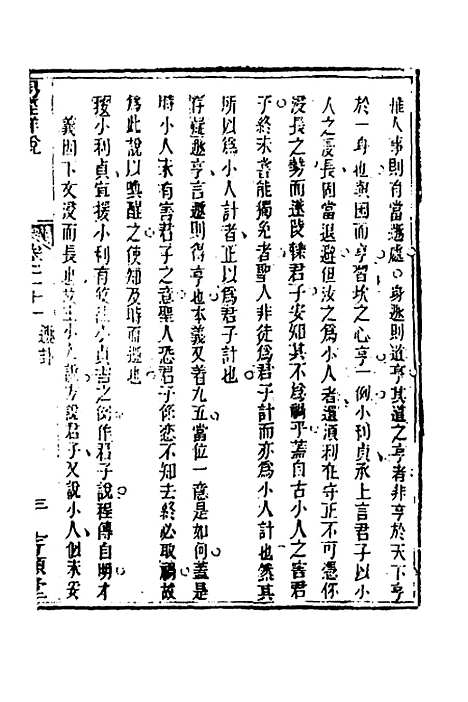 推人事則自當遯處身遯則道亨其道之亨者非亨於天下亨
於一身也與困而亨習坎之心亨一例小利貞承上言君子以小
人之浸長固當退避但汝之爲小人者還須利在守正不可憑你
浸長之勢而遂陵轢君子安知其不爲禍乎蓋自古小人之害君
子終未嘗能獨免者聖人非徒爲君子計而亦爲小人計也然其
所以爲小人計者正以爲君子計也
存疑遯亨言遯則得亨也本義又著九五當位一意是如何蓋是
時小人未有害君子之意聖人恐君子係戀不知去終必取禍故
爲此說以喚醒之使知及時而遯也
按小利貞宜援小利有攸往小貞吉之例作君子說程傳自明才
義因下文浸而長也故主小人說方說君子又說小人似未安
易經詳說
卷二十一 遯卦
三